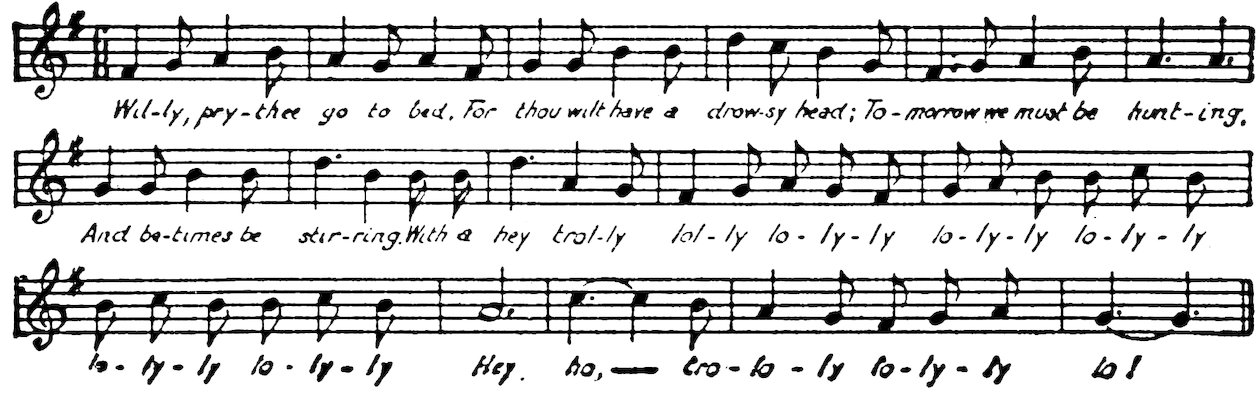 Wil-ly, pry-thee go to bed, For thou wilt have a drow-sy head; To-morrow we must be hunt-ing.
And be-times be stir-ring. With a hey trol-ly lol-ly lo-ly-ly lo-ly-ly lo-ly-ly
lo-ly-ly lo-ly-ly Hey. ho, — tro-lo-ly lo-ly-ly lo!